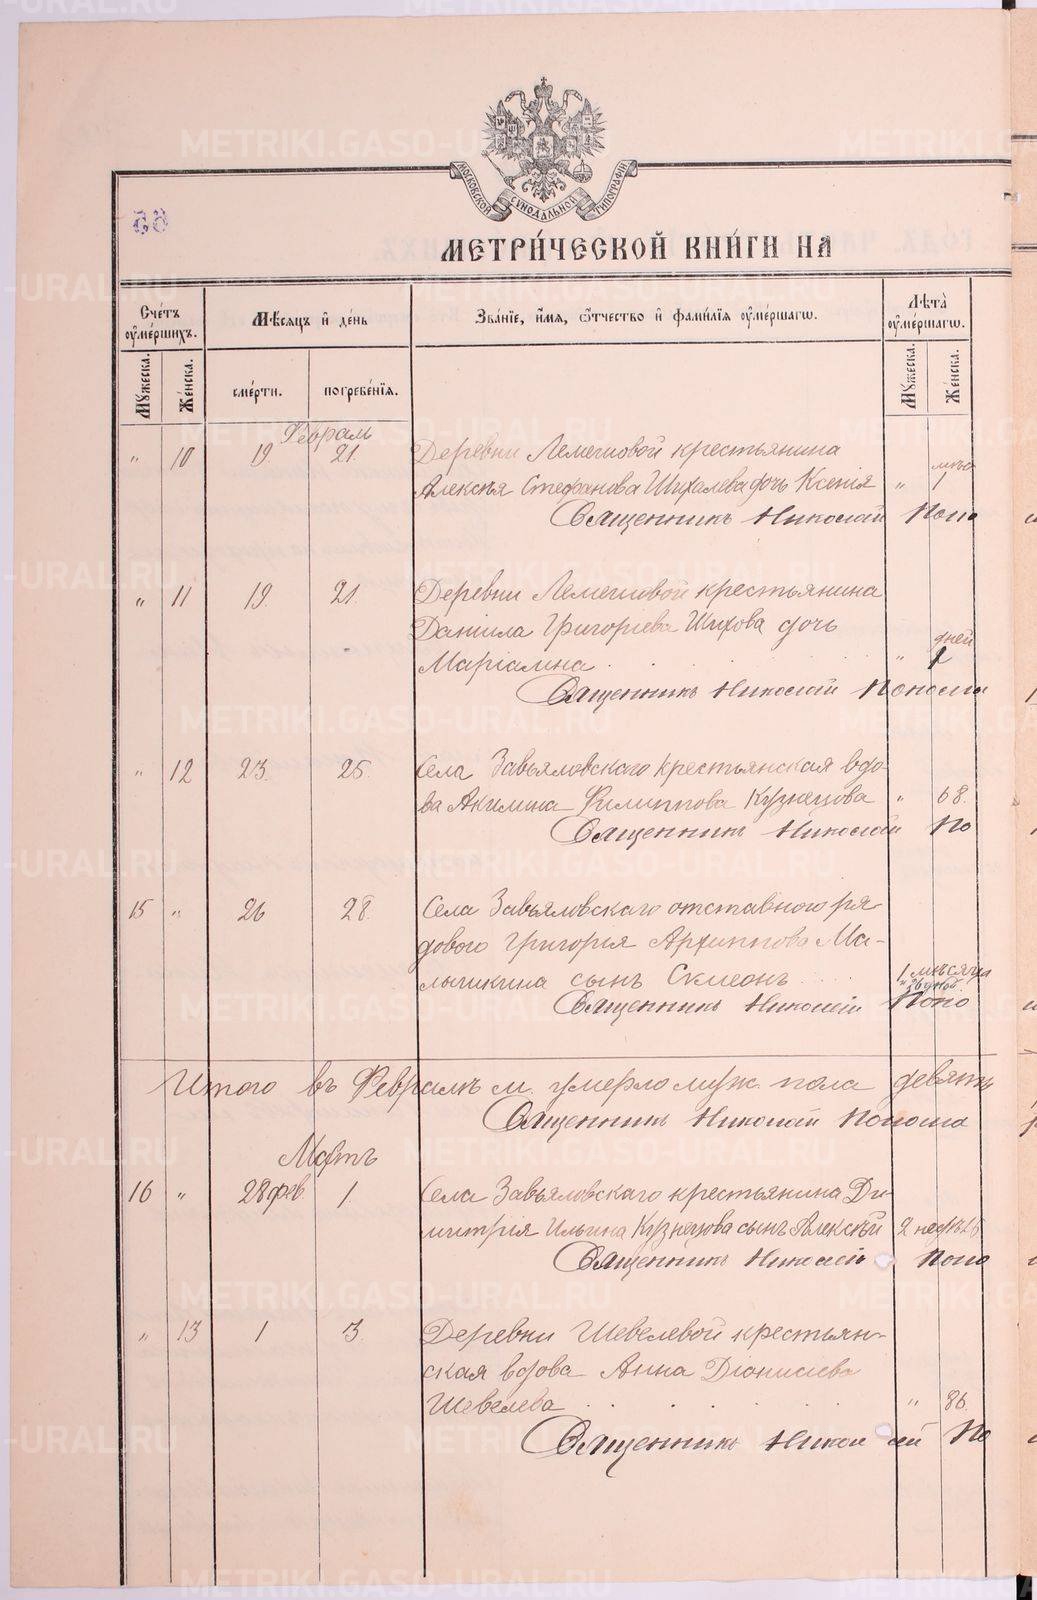 МОСКОВСКОЙ СѴНОДАЛЬНОЙ ТИПОГРАФІИ
МЕТРИ́ЧЕСКОЙ КНИ́ГИ НА
Сче́тъ ᲂу҆ме́ршихъ.
Мꙋ́жеска. Же́нска.
Мѣ́сяцъ и҆ де́нь
сме́рти. погребе́нїѧ.
Зва́нїе, и҆́мѧ, ѻ҆́тчество и҆ фами́лїѧ ᲂу҆ме́ршагѡ.
Лѣ́та ᲂу҆ме́ршагѡ.
Мꙋ́жеска. Же́нска.
Февраль
" 10 19. 21. Деревни Лемешовой крестьянина
Алексѣя Стефанова Шихалева дочь Ксенія " 1 мѣс
Священникъ Николай Поно
" 11 19. 21. Деревни Лемешовой крестьянина
Даніила Григорьева Шихова дочь
Маріамна . . . . . . " дней 2
Священникъ Николай Понома
" 12 23. 25. Села Завьяловскаго крестьянская вдо-
ва Акилина Филиппова Кузнецова " 68.
Священникъ Николай По
15 " 26 28. Села Завьяловскаго отставного ря-
дового Григорія Архиппова Ма-
лычкина сынъ Симеонъ 1 мѣсяца
Священникъ Николай Поно
Итого въ Февралѣ м. умерло муж. пола девять
Священникъ Николай Понома
Мартъ
16 " 28 фев. 1 Села Завьяловскаго крестьянина Ди-
митрія Ильина Кузнецова сынъ Алексѣй 2 недѣль
Священникъ Николай Поно
" 13 1 3. Деревни Шевелевой крестьян-
ская вдова Анна Діонисіева
Шевелева . . . . . . " 86.
Священникъ Николай По
METRIKI.GASO-URAL.RU